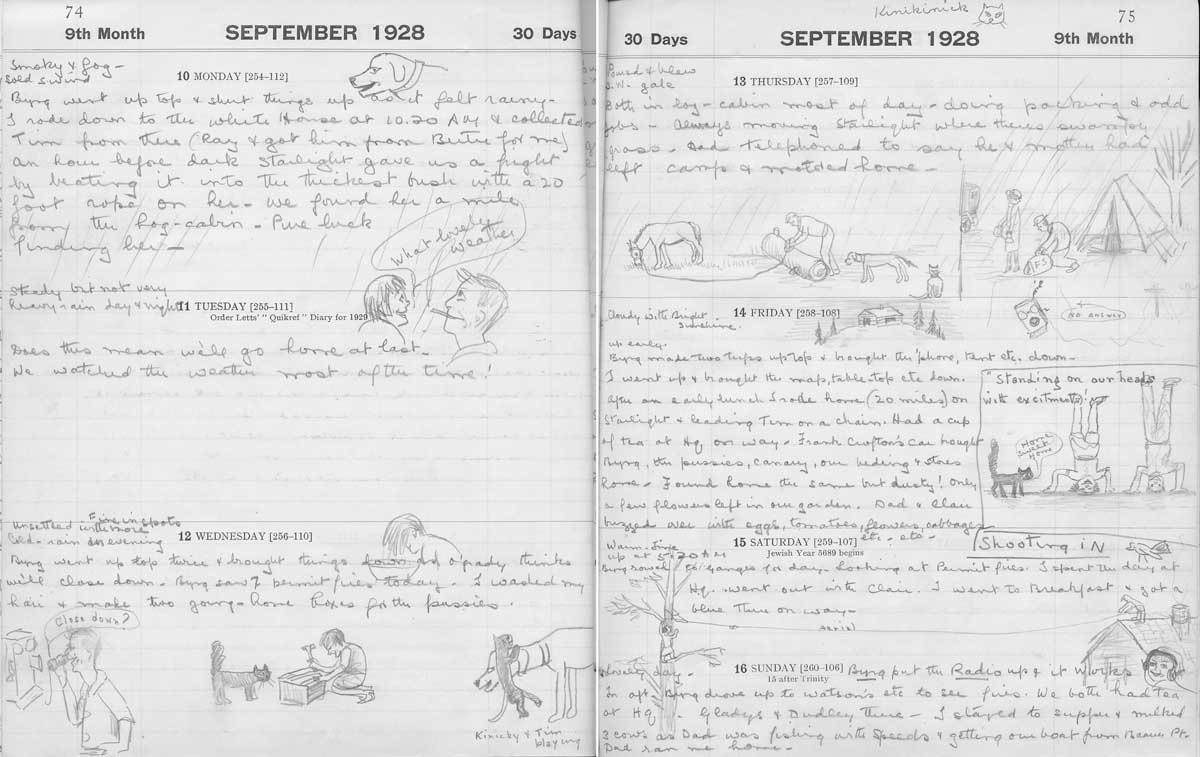 74
9th Month
SEPTEMBER 1928
30 Days
Smoky & fog -
Cold S wind
10 MONDAY [254–112]
Byng went up top & shut things up as it felt rainy -
I rode down to the White House at 10.20 AM & collected
Tim from there (Ray & got him from Bertie for me)
an hour before dark Starlight gave us a fright
by beating it into the thickest bush with a 20
foot rope on her - we found her a mile
from the log-cabin - Pure luck
finding her -
What lovely weather
Steady but not very
heavy rain day & night
11 TUESDAY [255–111]
Order Letts' " Quikref " Diary for 1929
Does this mean we'll go home at last -
We watched the weather most of the time!
Unsettled Fine in spots
with more
Cold - rain in evening
12 WEDNESDAY [256–110]
Byng went up top twice & brought things down as Opady thinks
will close down - Byng saw 7 permit fires today - I washed my
hair & make two going-home boxes for the pussies.
Close down?
Kinicky & Tim
playing
Kinikinick
75
30 Days
SEPTEMBER 1928
9th Month
Poured & blew
S.W. gale
13 THURSDAY [257–109]
Both in log-cabin most of day - doing packing & odd
jobs - Always moving Starlight where there's swampy
grass - Dad telephoned to say he & mother had
left camp & motored home -
NO ANSWER
Cloudy with Bright
Sunshine.
14 FRIDAY [258–108]
up early -
Byng made two trips up top & brought the 'phone, tent etc. down -
I went up & brought the map, table-top etc down.
After an early lunch I rode home (20 miles) on
Starlight & leading Tim on a chain. Had a cup
of tea at Hq on way - Frank Crofton's car brought
Byng, the pussies, canary, our beding & stores
home - Found home the same but dusty! Only
a few flowers left in our garden. Dad & Clair
buzzed over with eggs, tomatoes, flowers, cabbages
etc - etc -
"Standing on our heads
with excitments!"
Home Sweet Home
Warm - Fine
up at 5.20 AM
15 SATURDAY [259–107]
Jewish Year 5689 begins
Shooting iN
Byng rowed to Ganges for day - looking at Permit fires. I spent the day at
Hq. went out with Clair. I went to Breakfast & got a
blue Thru on way -
Aerial
Lovely day -
16 SUNDAY [260–106]
15 after Trinity
Byng put the Radio up & it Works
In aft. Byng drove up to Watson's etc to see fires. We both had tea
at HQ. Gladys & Dudley there - I stayed to supper & milked
3 cows as Dad was fishing with Speeds & getting our boat from Beaver Pt.
Dad ran me home -